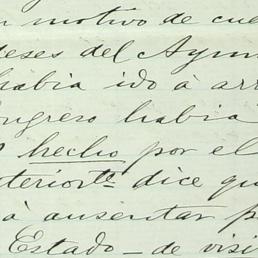 motivo de cue
eses del Ayun
habia ido à arr
ngreso habia
hecho por el
terior te dice qu
à ausentar p
Estado - de visi